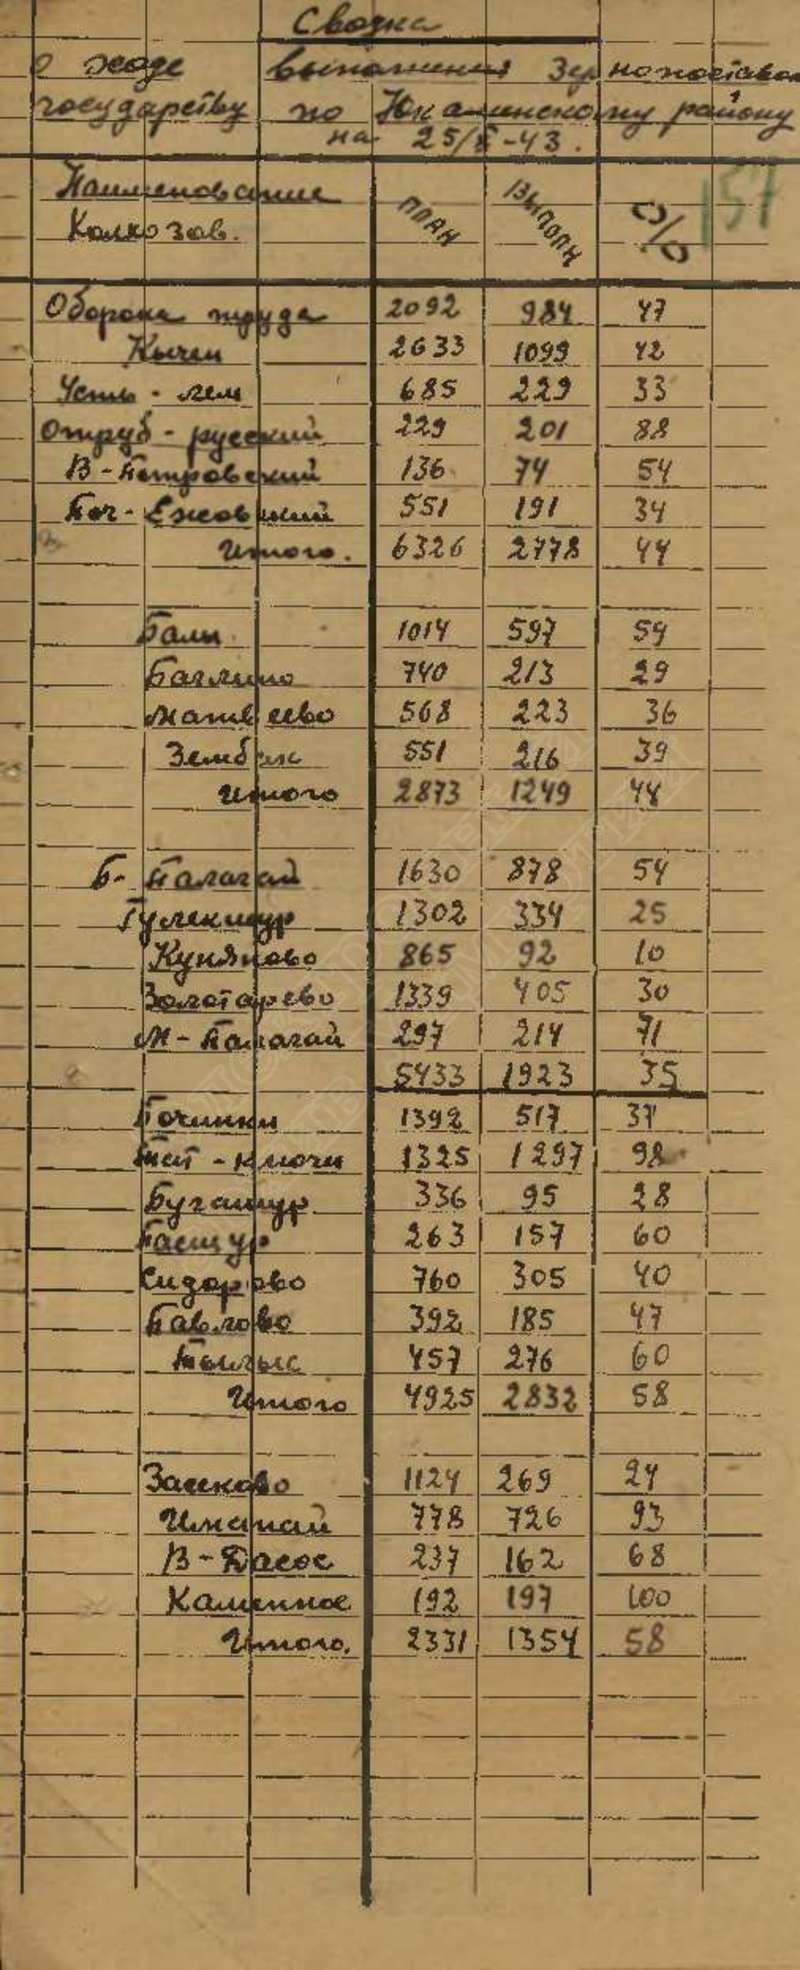 Сводка
о ходе выполнения Зернопоставок
государству по Юкаменскому району
на 25/X-43.
157
Наименование Колхозов. план выполн %
Оборона труда 2092 984 47
Кычен 2633 1099 42
Усть-лем 685 229 33
Отруб-русский 229 201 88
В-Петровский 136 74 54
Поч-Ежовский 551 191 34
Итого. 6326 2778 44
Пали 1014 597 59
Баглино 740 213 29
Матвеево 568 223 36
Зембак 551 216 39
Итого 2873 1249 44
Б-Палагай 1630 878 54
Гулекшур 1302 334 25
Куняково 865 92 10
Золотарево 1339 405 30
М-Палагай 297 214 71
5433 1923 35
Починки 1392 517 37
Тат-ключи 1325 1297 98
Бугашур 336 95 28
Пасшур 263 157 60
Сидорово 760 305 40
Павлово 392 185 47
Тылыс 457 276 60
Итого 4925 2832 58
Засеково 1124 269 24
Иманай 778 726 93
В-Дасос 237 162 68
Каменное 192 197 100
Итого. 2331 1354 58